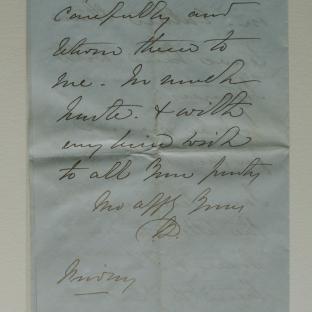 carefully and
return them to
me. In much
haste. & with
every kind wish
to all your party
Mo affly Yours